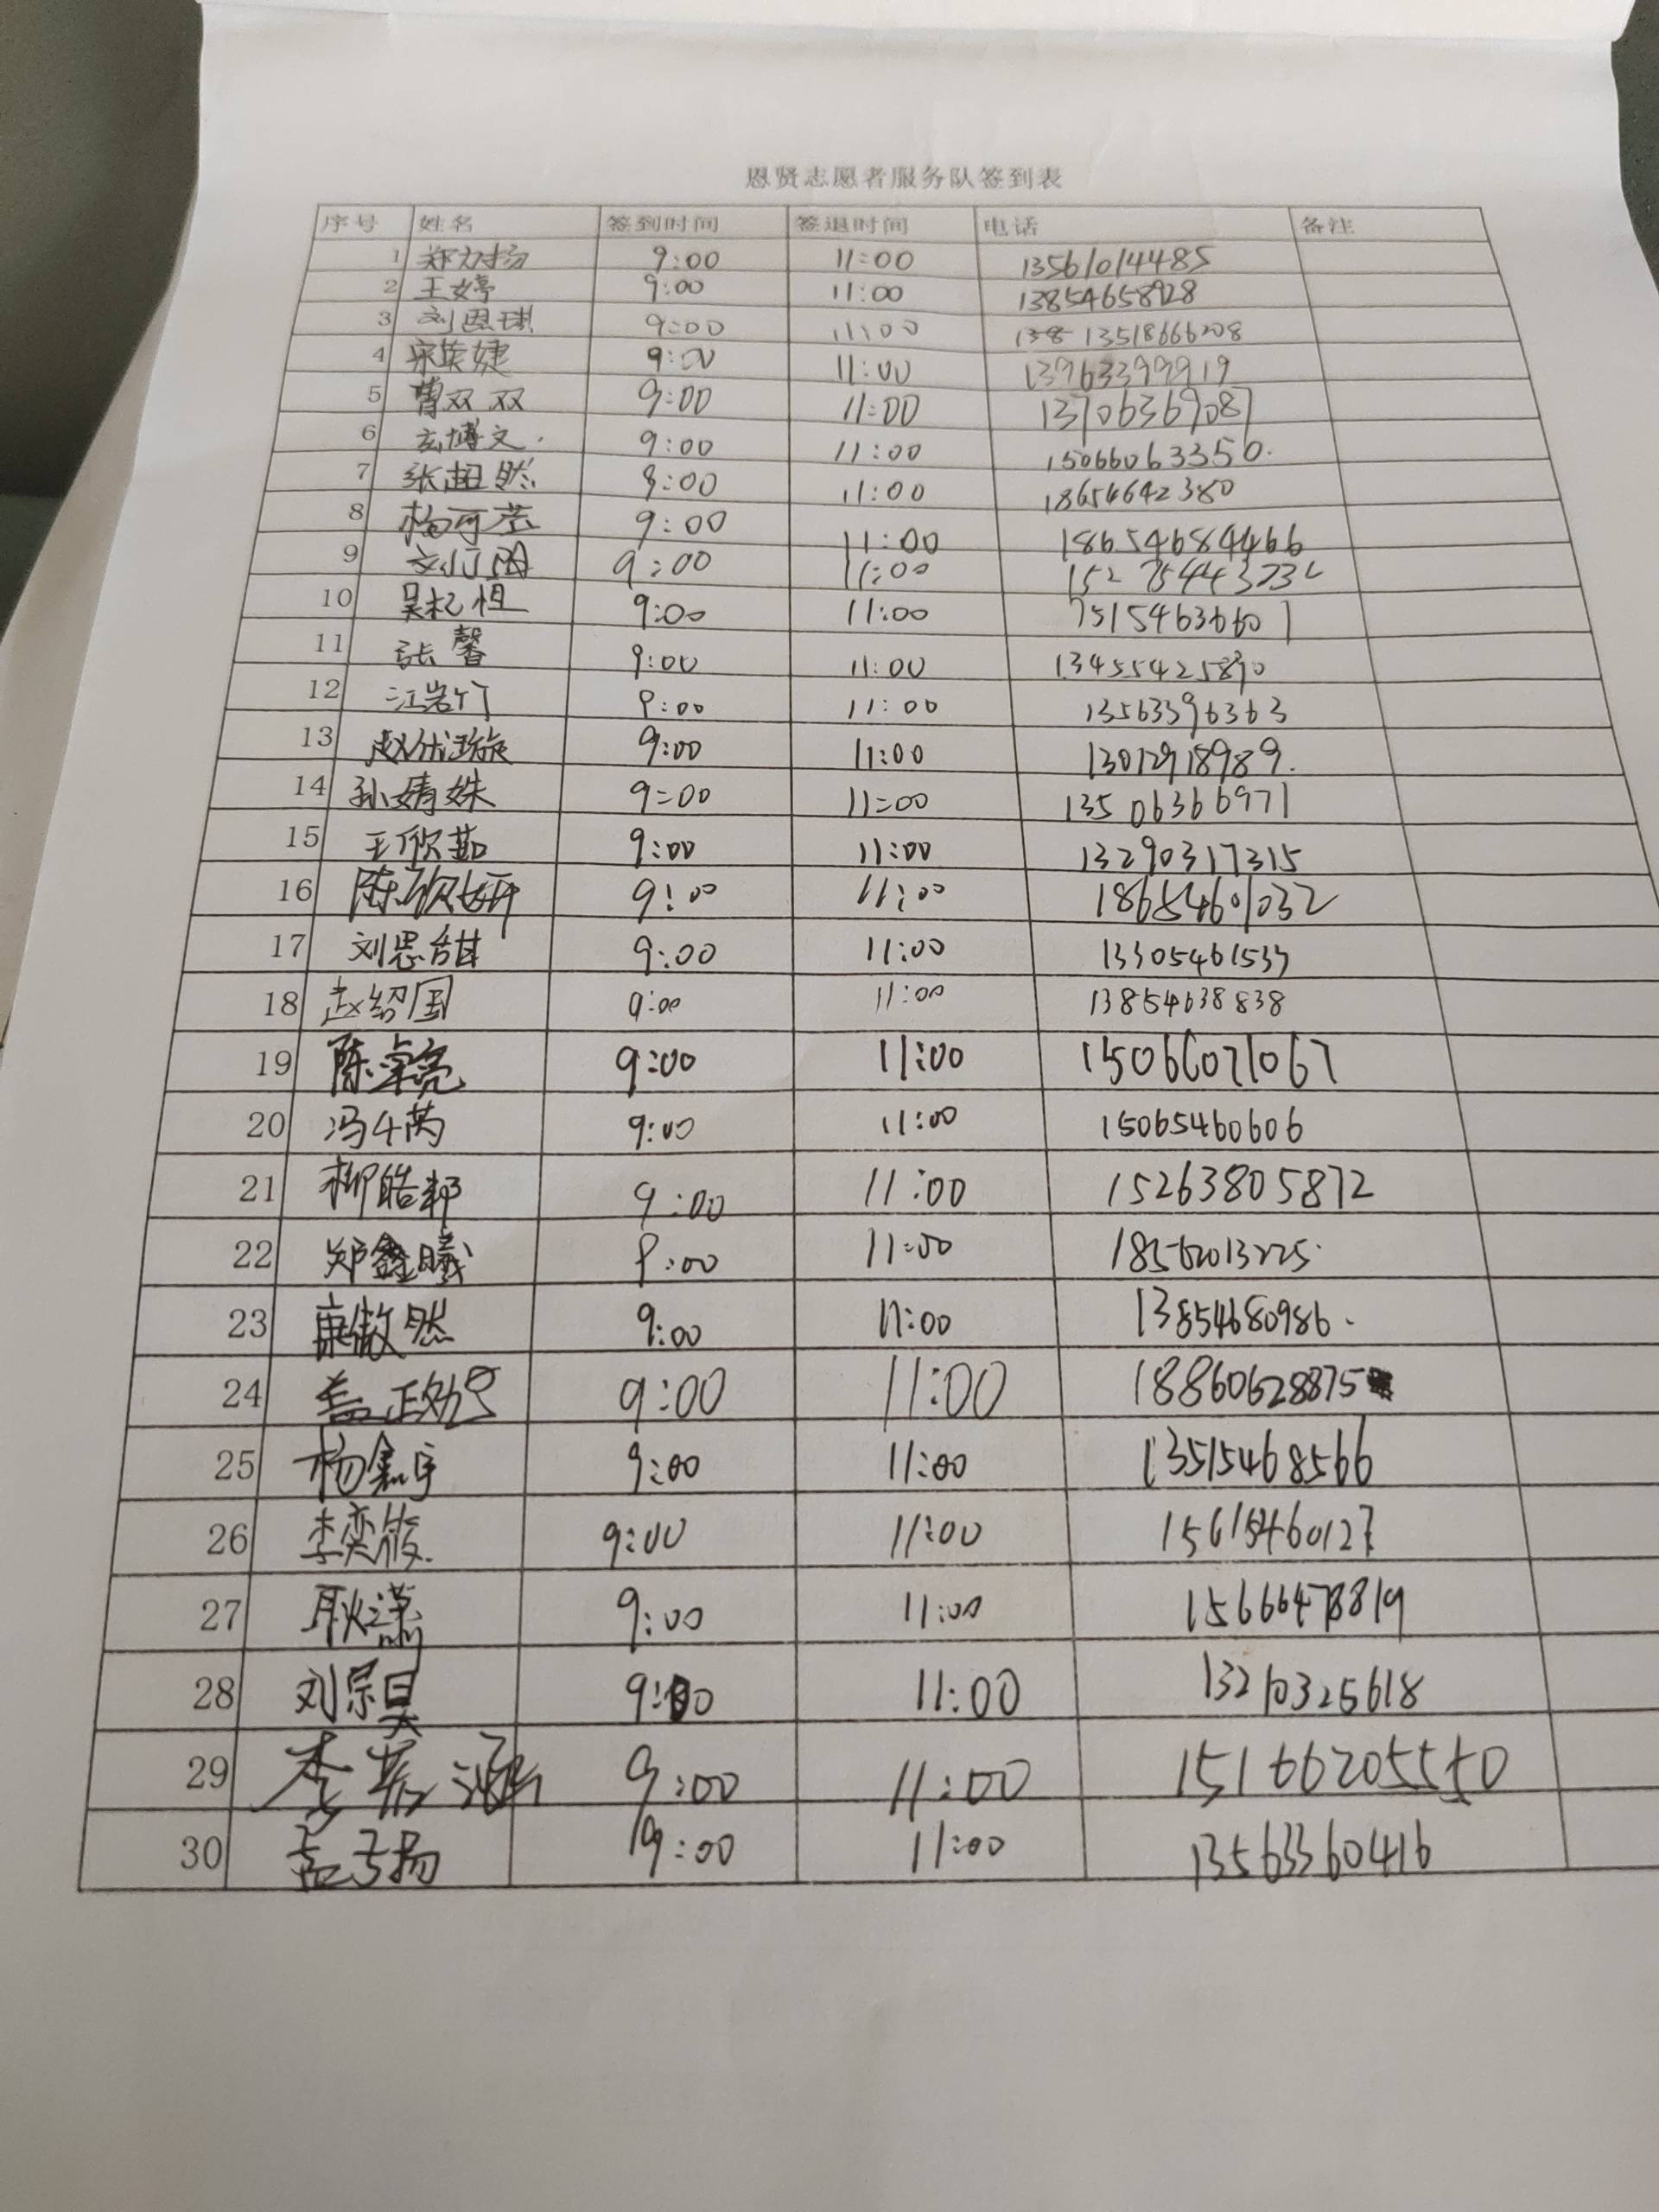 恩贤志愿者服务队签到表
序号 姓名 签到时间 签退时间 电话 备注
1 郑力扬 9:00 11:00 13561014485
2 王婷 9:00 11:00 13854658928
3 刘恩琪 9:00 11:00 13518666208
4 9:00 11:00 13963399919
5 曹双双 9:00 11:00 13706369087
6 玄博文 9:00 11:00 15066063350
7 张超然 9:00 11:00 18654642380
8 9:00 11:00 18654684466
9 9:00 11:00
10 9:00 11:00
11 张馨 9:00 11:00 13455425890
12 江岩竹 9:00 11:00 13563396363
13 9:00 11:00 13012918989.
14 孙婧姝 9:00 11:00 13506366971
15 王欣茹 9:00 11:00 13290317315
16 陈欣妍 9:00 11:00 18654601032
17 刘思甜 9:00 11:00 13305461537
18 赵绍国 9:00 11:00 13854638838
19 9:00 11:00 15066071067
20 9:00 11:00 15065460606
21 柳皓邦 9:00 11:00 15263805872
22 郑鑫曦 9:00 11:00 18562013225
23 康傲然 9:00 11:00 13854680986
24 9:00 11:00 18860628875
25 杨鑫宇 9:00 11:00 13515468566
26 李奕筱 9:00 11:00 15615460127
27 耿潇 9:00 11:00 15666478819
28 刘宗昊 9:00 11:00 13210325618
29 9:00 11:00 15166205550
30 9:00 11:00 13563360416